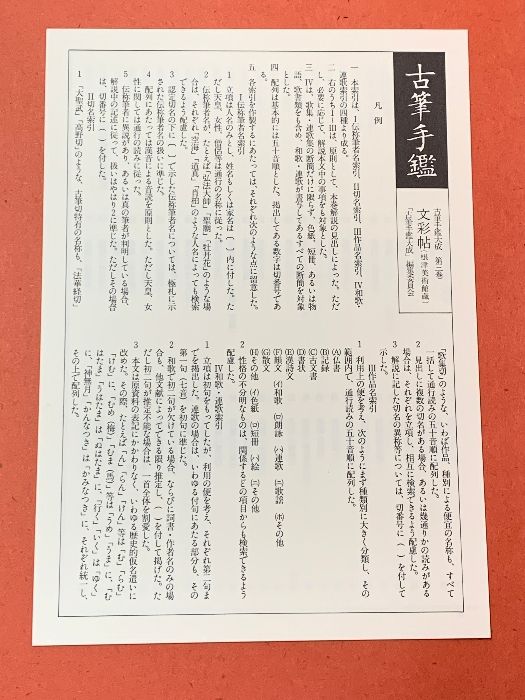 古筆手鑑
古筆手鑑大成 第二巻
文彩帖(根津美術館蔵)
「古筆手鑑大成」編集委員会
凡例
一 本索引は、Ⅰ伝称筆者名索引、Ⅱ切名索引、Ⅲ作品名索引、Ⅳ和歌・
連歌索引の四種より成る。
二 右のうちⅠ~Ⅲは、原則として、本巻解説の見出しによった。ただ
し、必要に応じて、解説本文中の事項をも対象とした。
三 Ⅳは、歌集・連歌集の断簡だけに限らず、色紙、短冊、あるいは物
語、歌書類をも含め、和歌・連歌が書写してあるすべての断簡を対象
とした。
四 配列は基本的には五十音順とした。掲出してある数字は切番号であ
る。
五 各索引を作製するにあたっては、それぞれ次のような点に留意した。
Ⅰ伝称筆者名索引
1 立項は人名のみとし、姓名もしくは家名は( )内に付した。た
だし天皇、女性、僧侶等は通行の名称に従った。
2 伝称筆者名が、たとえば「弘法大師」「聖廟」「牡丹花」のような場
合は、それぞれ「空海」「道真」「肖柏」のような人名によっても検索
できるよう配慮した。
3 認定切名の下に( )で示した伝称筆者名については、極札に示
された伝称筆者名の扱いに準じた。
4 配列にあたっては漢音による音読を原則とした。ただし天皇、女
性に関しては通行の読みに従った。
5 伝称筆者に異説があり、あるいは真の筆者が判明している場合、
解説中の記述に従った。扱いはやはり2に準じた。ただしその場合
は、切番号に( )を付した。
Ⅱ切名索引
1 「大聖武」「高野切」のような、古筆切特有の名称も、「法華経切」
「歌集切」のような、いわば作品、種別による便宜の名称も、すべて
一括して通行読みの五十音順に配列した。
2 見出しに複数の切名がある場合、あるいは幾通りかの読みがある
場合は、それぞれを立項し、相互に検索できるよう配慮した。
3 解説に記した切名の異称等については、切番号に( )を付して
示した。
Ⅲ作品名索引
1 利用上の便を考え、次のようにまず種類別に大きく分類し、その
範囲内で、通行読みの五十音順に配列した。
(A)仏書
(B)記録
(C)古文書
(D)書状
(E)漢詩文
(F)願文
(G)散文 (イ)和歌 (ロ)朗詠 (ハ)連歌 (ニ)歌謡 (ホ)その他
(H)その他 (イ)色紙 (ロ)短冊 (ハ)絵 (ニ)その他
2 性格の不分明なものは、関係するどの項目からも検索できるよう
配慮した。
Ⅳ和歌・連歌索引
1 立項は初句をもってしたが、利用の便を考え、それぞれ第二句ま
でを掲出した。連歌の場合は、いわゆる付句にあたる部分も、その
第一句(七音)を初句に準じた。
2 和歌で初二句が欠けている場合、ならびに詞書・作者名のみの場
合も、他文献によってできる限り推定し、( )を付して掲げた。た
だし初二句が推定不能な場合は、一首全体を割愛した。
3 本文は原資料の表記にかかわりなく、いわゆる歴史的仮名遣いに
改めた。その際、たとえば「ん」「らん」「けん」等は「む」「らむ」
「けむ」に、「むめ(梅)」「むま(馬)」等は「うめ」「うま」に、「む
はたま」「うはたま」は「ぬばたま」に、「行く」「いく」は「ゆく」
に、「神無月」「かんなつき」は「かみなつき」に、それぞれ統一し、
その上で配列した。